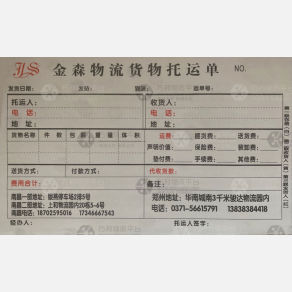 JLS 金森物流货物托运单 NO.
发货日期： 发站： 到站： 运单号：
托运人： 收货人：
电话： 电话：
地址： 地址：
货物名称 件数 包装 重量 体积 运费： 提货费： 送货费：
声明价值： 保险费： 装卸费：
垫付费： 手续费： 其他费：
送货方式： 付款方式： 代收货款：
费用合计： 备注：
南昌一部地址：银燕停车场22排5号
南昌二部地址：上和物流园内20栋5-6号
南昌电话：18702595016 17346667543
郑州地址：华南城南3千米骏达物流园内
电话：0371-56615791 13838384418
经办人： 托运人签字：